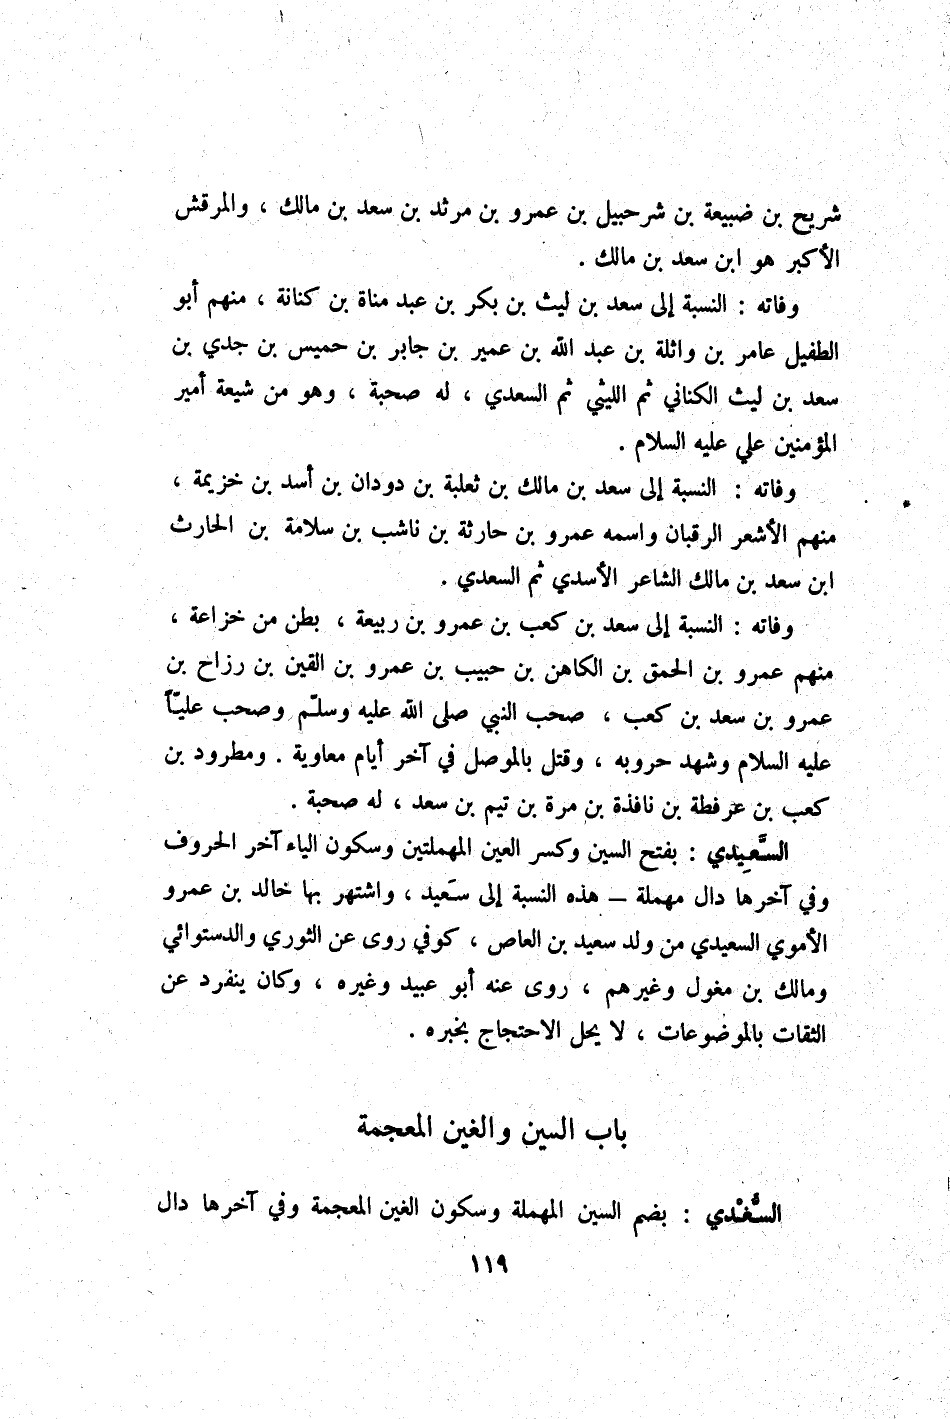 شريح بن ضبيعة بن شرحبيل بن عمرو بن مرثد بن سعد بن مالك ، والمرقش
الأكبر هو ابن سعد بن مالك .
وفاته : النسبة إلى سعد بن ليث بن بكر بن عبد مناة بن كنانة ، منهم أبو
الطفيل عامر بن واثلة بن عبد الله بن عمير بن جابر بن حميس بن جدي بن
سعد بن ليث الكناني ثم الليثي ثم السعدي ، له صحبة ، وهو من شيعة أمير
المؤمنين علي عليه السلام .
وفاته : النسبة إلى سعد بن مالك بن ثعلبة بن دودان بن أسد بن خزيمة ،
منهم الأشعر الرقبان واسمه عمرو بن حارثة بن ناشب بن سلامة بن الحارث
ابن سعد بن مالك الشاعر الأسدي ثم السعدي .
وفاته : النسبة إلى سعد بن كعب بن عمرو بن ربيعة ، بطن من خزاعة ،
منهم عمرو بن الحمق بن الكاهن بن حبيب بن عمرو بن القين بن رزاح بن
عمرو بن سعد بن كعب ، صحب النبي صلى الله عليه وسلّم وصحب عليّاً
عليه السلام وشهد حروبه ، وقتل بالموصل في آخر أيام معاوية . ومطرود بن
كعب بن عرفطة بن نافذة بن مرة بن تيم بن سعد ، له صحبة .
السَّعِيدي : بفتح السين وكسر العين المهملتين وسكون الياء آخر الحروف
وفي آخرها دال مهملة – هذه النسبة إلى سَعيد ، واشتهر بها خالد بن عمرو
الأموي السعيدي من ولد سعيد بن العاص ، كوفي روى عن الثوري والدستوائي
ومالك بن مغول وغيرهم ، روى عنه أبو عبيد وغيره ، وكان ينفرد عن
الثقات بالموضوعات ، لا يحل الاحتجاج بخبره .
باب السين والغين المعجمة
السُّغْدي : بضم السين المهملة وسكون الغين المعجمة وفي آخرها دال
١١٩